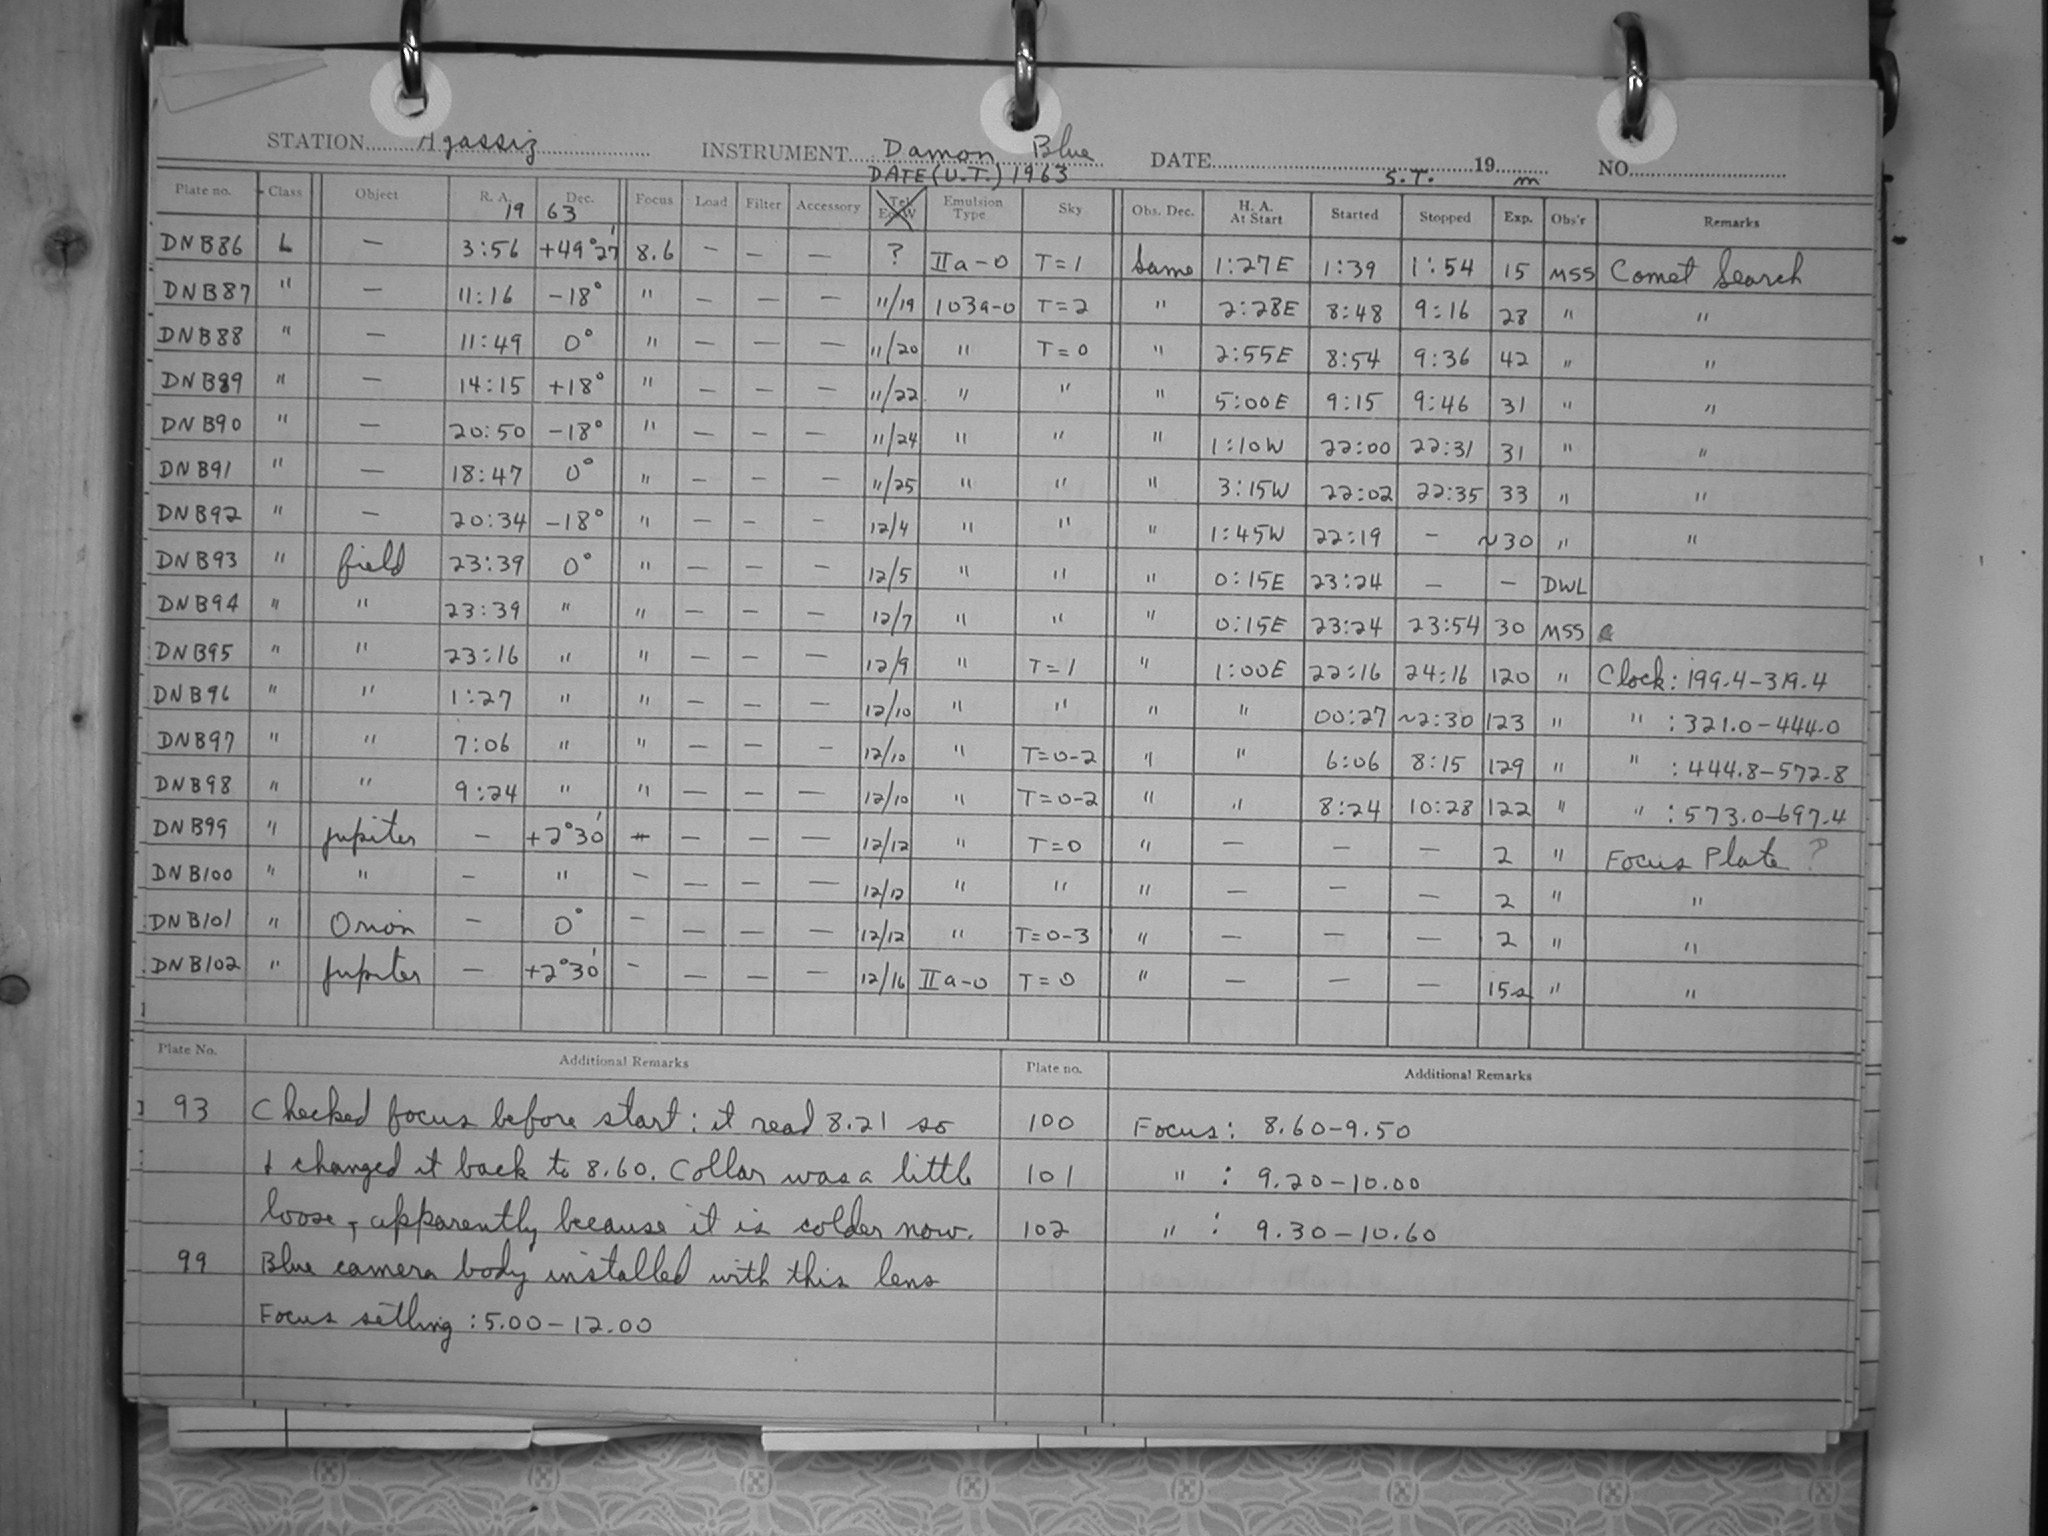 STATION Agassiz INSTRUMENT Damon Blue DATE 19 NO.
DATE (U.T.) 1963 S.T. m
Plate no. Class Object R. A. Dec. Focus Load Filter Accessory Tel. E or W Emulsion Type Sky Obs. Dec. H. A. At Start Started Stopped Exp. Obs'r Remarks
19 63
DNB86 L — 3:56 +49°27' 8.6 — — — ? IIa-O T=1 Same 1:27E 1:39 1:54 15 MSS Comet Search
DNB87 " — 11:16 -18° " — — — 11/19 103a-O T=2 " 2:28E 8:48 9:16 28 " "
DNB88 " — 11:49 0° " — — — 11/20 " T=0 " 2:55E 8:54 9:36 42 " "
DNB89 " — 14:15 +18° " — — — 11/22 " " " 5:00E 9:15 9:46 31 " "
DNB90 " — 20:50 -18° " — — — 11/24 " " " 1:10W 22:00 22:31 31 " "
DNB91 " — 18:47 0° " — — — 11/25 " " " 3:15W 22:02 22:35 33 " "
DNB92 " — 20:34 -18° " — — — 12/4 " " " 1:45W 22:19 — ~30 " "
DNB93 " field 23:39 0° " — — — 12/5 " " " 0:15E 23:24 — — DWL
DNB94 " " 23:39 " " — — — 12/7 " " " 0:15E 23:24 23:54 30 MSS
DNB95 " " 23:16 " " — — — 12/9 " T=1 " 1:00E 22:16 24:16 120 " Clock: 199.4-319.4
DNB96 " " 1:27 " " — — — 12/10 " " " " 00:27 ~2:30 123 " " : 321.0-444.0
DNB97 " " 7:06 " " — — — 12/10 " T=0-2 " " 6:06 8:15 129 " " : 444.8-572.8
DNB98 " " 9:24 " " — — — 12/10 " T=0-2 " " 8:24 10:28 122 " " : 573.0-697.4
DNB99 " Jupiter — +2°30' — — — — 12/12 " T=0 " — — — 2 " Focus Plate ?
DNB100 " " — " — — — — 12/12 " " " — — — 2 " "
DNB101 " Orion — 0° — — — — 12/12 " T=0-3 " — — — 2 " "
DNB102 " Jupiter — +2°30' — — — — 12/16 IIa-O T=0 " — — — 15s " "
Plate No. Additional Remarks Plate no. Additional Remarks
93 Checked focus before start: it read 8.21 so 100 Focus: 8.60-9.50
I changed it back to 8.60. Collar was a little 101 " : 9.20-10.00
loose, apparently because it is colder now. 102 " : 9.30-10.60
99 Blue camera body installed with this lens
Focus setting: 5.00-12.00